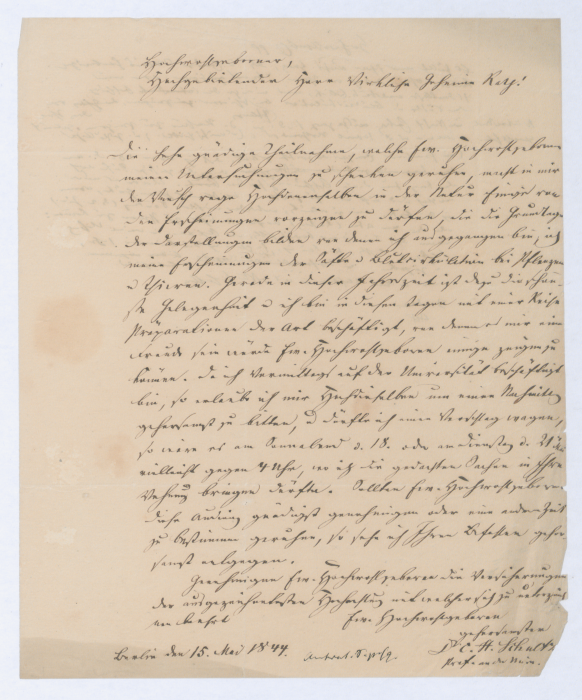 Hochwohlgeborner,
Hochgebietender Herr Wirkliche Geheime Rath!
Die hohe gnädige Theilnahme, welche Ew. Hochwohlgeboren
meinen Untersuchungen zu schenken geruhen, macht in mir
den Wunsch rege Hochdenenselben in der Natur Einige von
den Erscheinungen vorzeigen zu dürfen, die die Grundlage
der Darstellungen bilden von denen ich ausgegangen bin, ich
meine Erscheinungen der Säfte u Blutcirkulation bei Pflanzen
u Thieren. Gerade in dieser Jahreszeit ist dazu die schön-
ste Gelegenheit u ich bin in diesen Tagen mit einer Reihe
Präparationen der Art beschäftigt, von denen es mir eine
Freude sein würde Ew. Hochwohlgeboren einige zeigen zu
können. Da ich Vormittags auf der Universität beschäftigt
bin, so erlaube ich mir Hochdieselben um einen Nachmittag
gehorsamst zu bitten, u dürfte ich einen Vorschlag wagen,
so wäre es am Sonnabend d. 18. oder am Dienstag d. 21
vielleicht gegen 4 Uhr, wo ich die gedachten Sachen in Ihre
Wohnung bringen dürfte. Sollten Ew. Hochwohlgeboren
diese gnädigst genehmigen oder eine andere Zeit
zu bestimmen geruhen, so sehe ich Ihren Befehlen gehor-
samst entgegen.
Genehmigen Ew. Hochwohlgeboren die Versicherungen
der ausgezeichnetsten Hochachtung mit welcher sich zu unterzeich-
nen beehrt
Ew. Hochwohlgeboren
gehorsamster
Dr C. H. Schultz
Berlin den 15. Mai 1844.